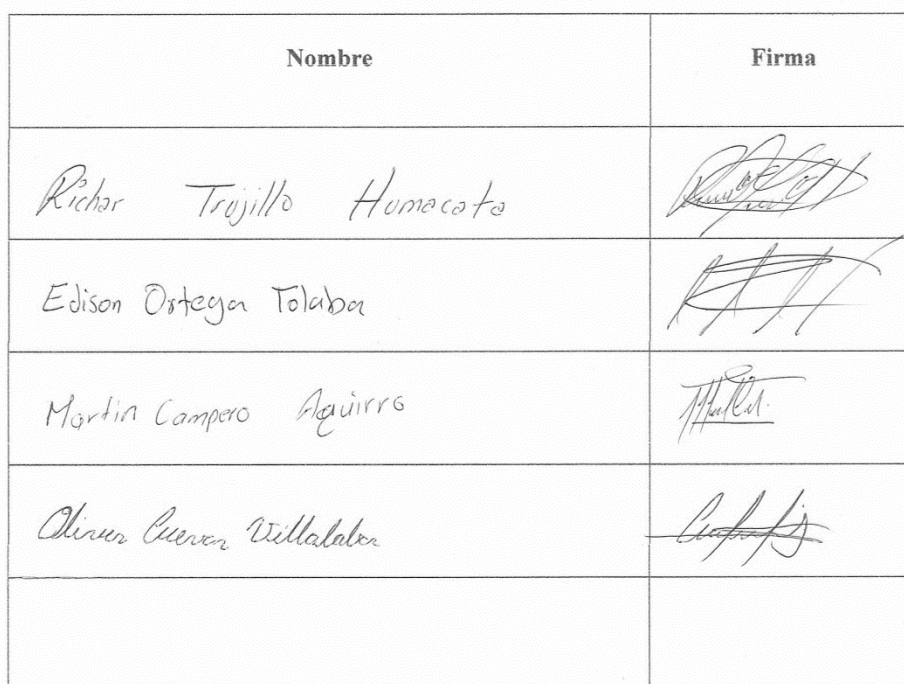 Nombre Firma
Richar Trujillo Humacata
Edison Ortega Tolaba
Martin Campero Aguirre
Cuevas Villalaba